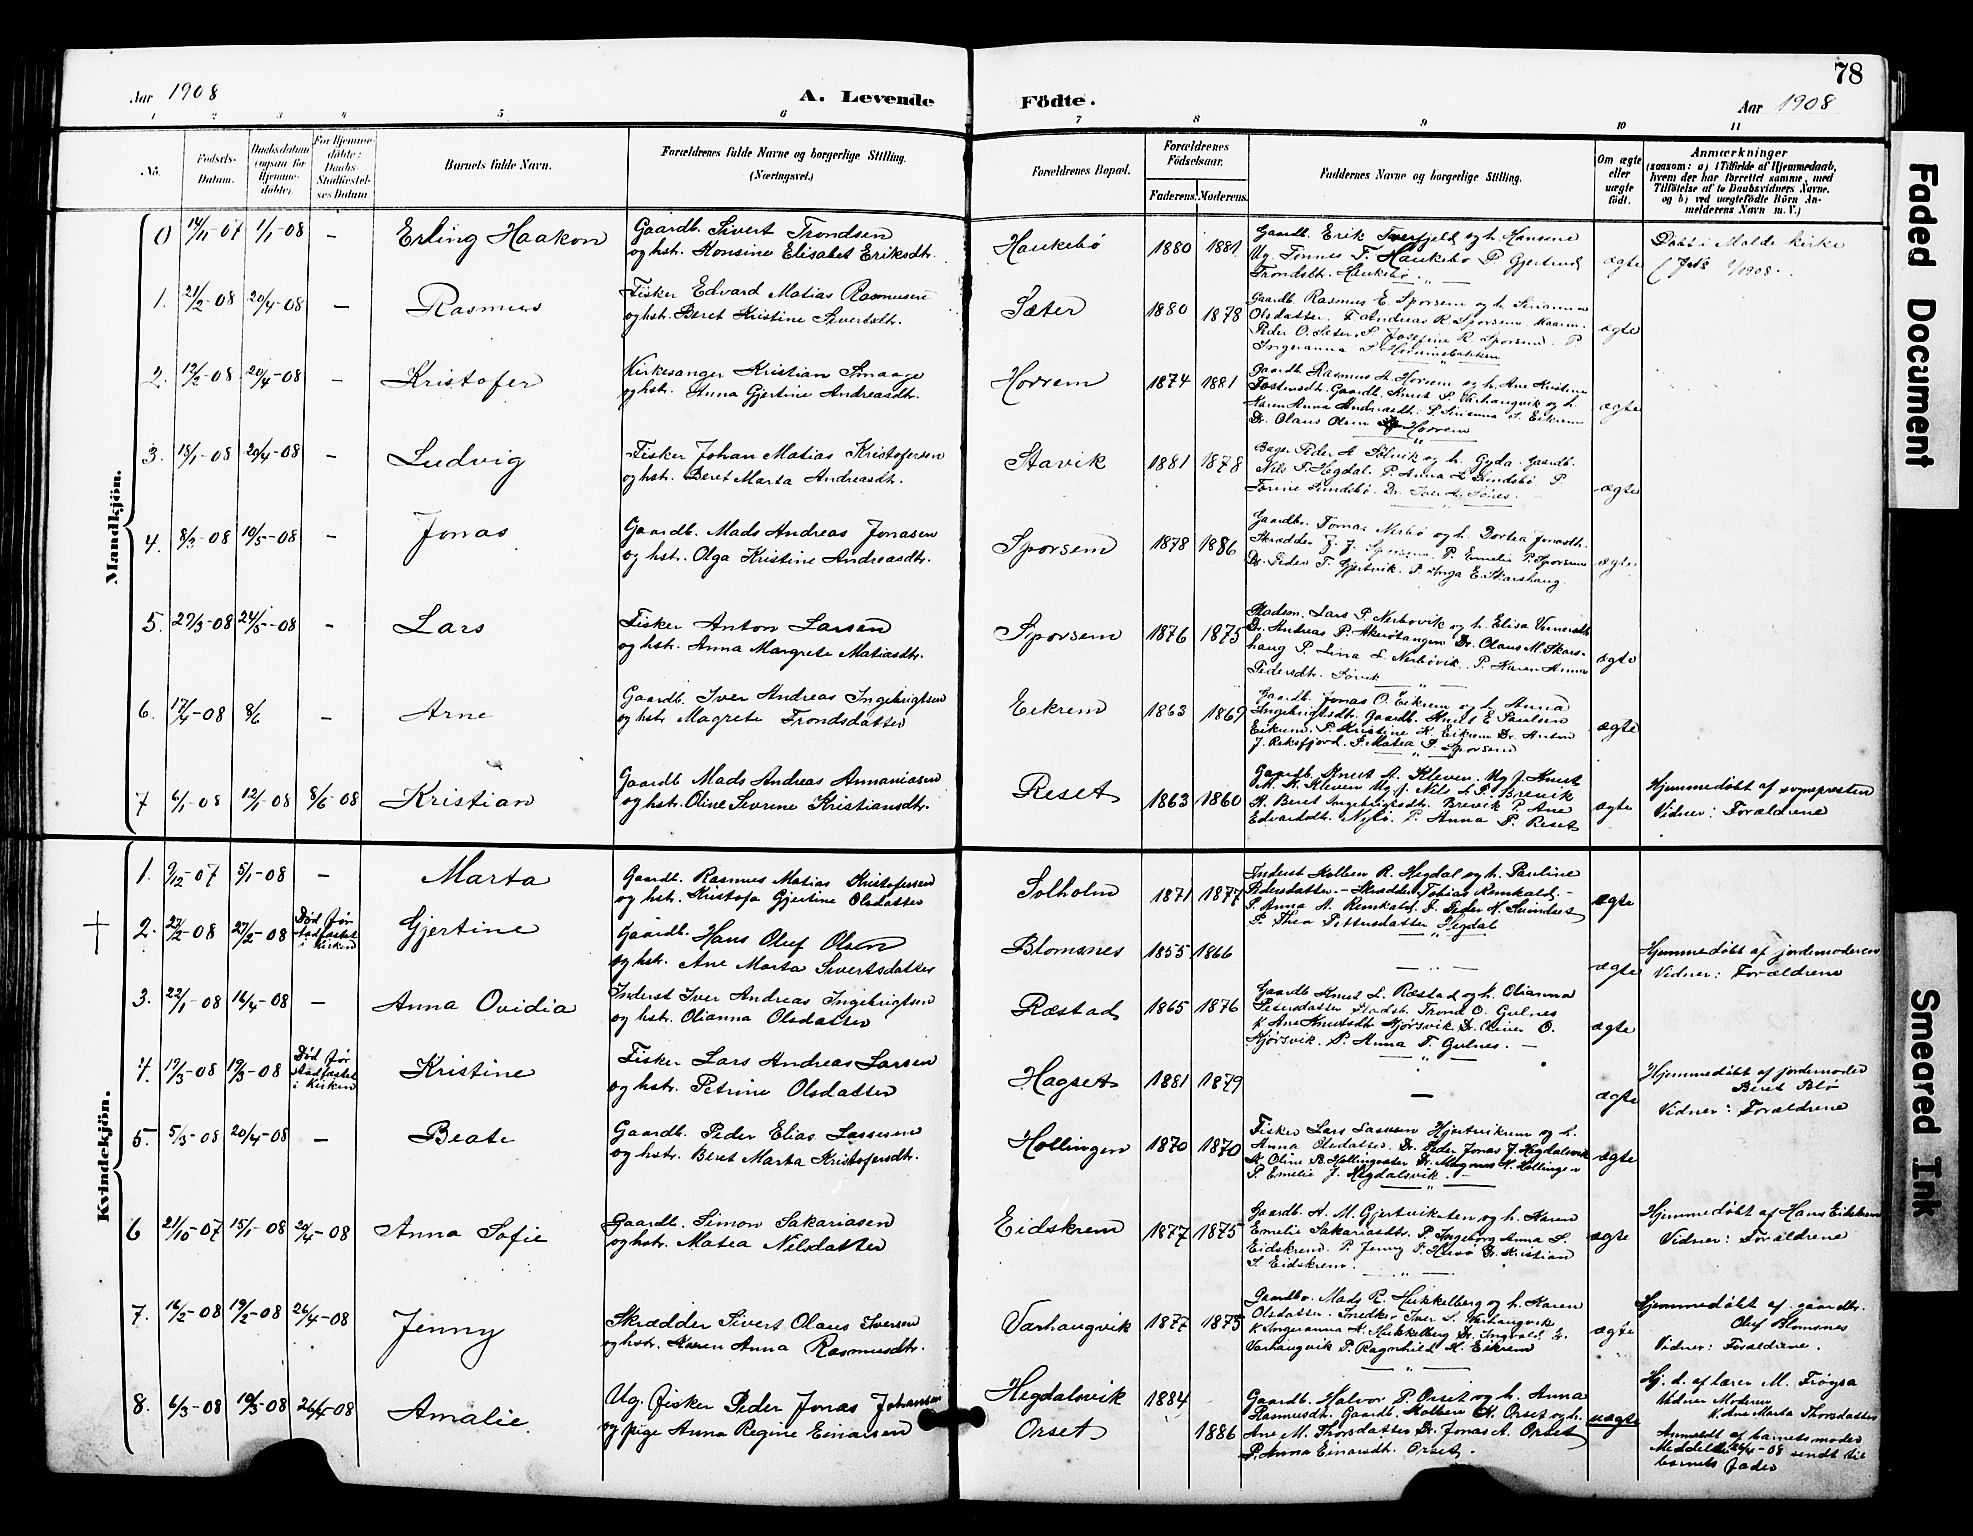 78
Aar 1908
A. Levende
Födte.
Aar 1908
1 2 3 4 5 6 7 8 9 10 11
No.
Fødsels-
Datum.
Daabsdatum
(ogsaa for
Hjemme-
døbte).
For Hjemme
døbte:
Daabs-
Stadfæstel-
ses Datum
Barnets fulde Navn.
Forældrenes fulde Navne og borgerlige Stilling.
(Næringsvei.)
Forældrenes Bopæl.
Forældrenes
Fødselsaar.
Faderens. Moderens.
Faddernes Navne og borgerlige Stilling.
Om ægte
eller
uægte
født.
Anmærkninger
(saasom: a) i Tilfælde af Hjemmedaab,
hvem der har forrettet samme, med
Tilføielse af to Daabsvidners Navne,
og b) ved uægtefødte Börn An-
melderens Navn m. V.)
Mandkjön.
0 14/11-07 1/1-08 - Erling Haakon
Gaardb. Sivert Trondsen
og hst. Hansine Elisabet Eriksdtr.
Haukebö 1880 1881
Gaardb. Erik Tverfjeld og h. Hansine
Ug. Tönnes T. Haukebø P. Gjertrud
Trondsdt. Haukebø
ægte
Döbt i Molde kirke
1/1 1908.
1. 21/2-08 20/4-08 - Rasmus
Fisker Edvard Matias Rasmusen
og hst. Beret Kristine Sivertsdtr.
Sæter 1880 1878
Gaardb. Rasmus E. Sporsem og h.
Olsdatter. Andreas R. Sporsem
Peder O. Seter. Josefine R. Sporsem. P
Ingeranna
ægte
2. 12/2-08 20/4-08 - Kristofer
Kirkesanger Kristian Smaage
og hst. Anna Gjertine Andreasdtr.
Horrem 1874 1881
Gaardb. Rasmus A. Horrem og h. Ane Kristine
Tostensdt. Gaardb. Knut S. Varhaugvik og h.
Karen Anna Andreasdt. S. Eikrem
Dr. Olaus Olsen Horrem
ægte
3. 18/1-08 20/4-08 - Ludvig
Fisker Johan Matias Kristofersen
og hst. Beret Marta Andreasdtr.
Stavik 1881 1878
Bager Peder A. og h. Gyda. Gaardb.
Nils P. Hegdal. P. Anna L. Sundsbø P.
Torine Sundsbø. Dr. Iver A.
ægte
4. 8/3-08 10/5-08 - Jonas
Gaardb. Mads Andreas Jonasen
og hst. Olga Kristine Andreasdtr.
Sporsem 1878 1886
Gaardbr. Tomas Nerbö og h. Dortea Jonasdt.
Skrædder J. J. Sporsem P. Emelie P. Sporsem
Dr. Peder T. Gjertvik. P. Inga E. Skarshaug.
ægte
5. 27/3-08 24/5-08 - Lars
Fisker Anton Larsen
og hst. Anna Margrete Matiasdtr.
Sporsem 1876 1875
Pladsm. Lars P. Nerbovik og h. Elisa
Dr. Andreas P. Akerötangen Dr. Olaus M. Skars-
haug P. Lina L. Nerbövik. P. Karen Anna
Pedersdt.
ægte
6. 17/4-08 8/6 - Arne
Gaardb. Iver Andreas Ingebrigtsen
og hstr Magrete Trondsdatter
Eikrem 1863 1869
Gaardb. Jonas O. Eikrem og h. Anna
Ingebrigtsdt. Gaardb. Knut E. Paulsen
Eikrem. P. Kristine K. Eikrem Dr. Anton
J. Reksfjord. P. Matea P. Sporsem
ægte
7 6/1-08 12/1-08 8/6-08 Kristian
Gaardb. Mads Andreas Annaniasen
og hst. Oline Sivrine Kristiansdtr.
Reset 1863 1860
Gaardb. Knut A. Kleven. Ug. J. Knut
M. K. Kleven Ug. j. Nils A. P. Brevik
K. Beret Ingebrigtsdt. Brevik P. Ane
Edvardsdt. Nesbø. P. Anna P. Reset
ægte
Hjemmedöbt af sognepresten
Vidner: Foræeldrene
Kvindekjön.
1. 9/12-07 5/1-08 - Marta
Gaardb. Rasmus Matias Kristofersen
og hst. Kristofa Gjertine Olsdatter
Solholm 1871 1877
Inderst Kolben R. Hegdal og h. Pauline
Pedersdatter. - Skrædder Tobias Remkald. -
P. Anna A. Remkald. D. Peder K. Svindset
P. Thea Pettersdatter Hegdal
ægte
2. 27/2-08 27/2-08 Død før
stadfæstet
i Kirken
Gjertine
Gaardb. Hans Oluf Olsen
og hst. Ane Marta Sivertsdatter
Blomsnes 1855 1866
ægte
Hjemmedöbt af jordemoderen
Vidner: Forældrene
3. 22/1-08 16/4-08 - Anna Ovidia
Inderst Iver Andreas Ingebrigtsen
og hst. Olianna Olsdatter
Ræstad 1865 1876
Gaardb Knut L. Ræstad og h. Olianna
Petersdatter Pladsb. Trond O. Gulnes
K. Ane Knutsdt Hjørsvik Dr. Oliver O.
Hjørsvik. P. Anna T. Gulnes. -
ægte
4. 19/3-08 19/3-08 Død før
stadfæstet
i Kirken
Kristine
Fisker Lars Andreas Larsen
og hst. Petrine Olsdatter
Hagset 1881 1879
-
ægte
Hjemmedöbt af jordemoder
Beret Blø
Vidner: Forældrene
5. 5/3-08 20/4-08 - Beate
Gaardb. Peder Elias Lassesen
og hst. Beret Marta Kristofersdt.
Hollingen 1870 1870
Fisker Lars Lassesen Hjertvikrem og h.
Anna Olsdatter. Dr. Peder Jonas J. Hegdalsvik
K. Oline B. Hollingsæter Dr. Magnus K. Hollingen
P. Emelie J. Hegdalsvik. -
ægte
6 21/10-07 15/1-08 20/4-08 Anna Sofie
Gaardb. Simon Sakariasen
og hst. Matea Nilsdatter
Eidskrem 1877 1875
Gaardb. A. M. Gjertviksten og h. Karen
Emelie Sakariasdt. P. Ingeborg Anna S.
Eidskrem. P. Jenny P. Husø Dr. Kristian
S. Eidskrem.
ægte
Hjemmedöbt af Hans Eidskrem
Vidner: Forældrene
7. 16/2-08 19/2-08 26/4-08 Jenny
Skrædder Sivert Olaus Iversen
og hst. Karen Anna Rasmusdtr.
Varhaugvik 1877 1875
Gaardbr. Mads R. Hukkelberg og h. Karen
Olsdatter. Snedker Iver S. Varhaugvik
K. Ingeranna A. Hukkelberg Dr. Ingvald E.
Varhaugvik P. Ragnhild K. Eikrem
ægte
Hjemmedöbt af gaardbr.
Oluf Blomsnes
Vidner: Forældrene.
8. 6/3-08 10/3-08 26/4-08 Amalie
Ug. fisker Peder Jonas Johansen
og pige Anna Regine Einarsen
Hegdalsvik
Orset
1884
1886
Gaardb. Halvor P. Orset og h. Anna
Rasmusdt. Gaardb. Kolben K. Orset og h.
Ane M. Thorsdatter Dr. Jonas A. Orset
P. Anna Einarsdt. Orset.
uægte
Hj. d. af lærer M. Frøysa
Vidner Moderen
K. Ane Marta Thorsdatter
Anmeldt af barnets moder
Meddelelse 26/4-08 sendt til
barnets fader
Faded Document
Smeared Ink